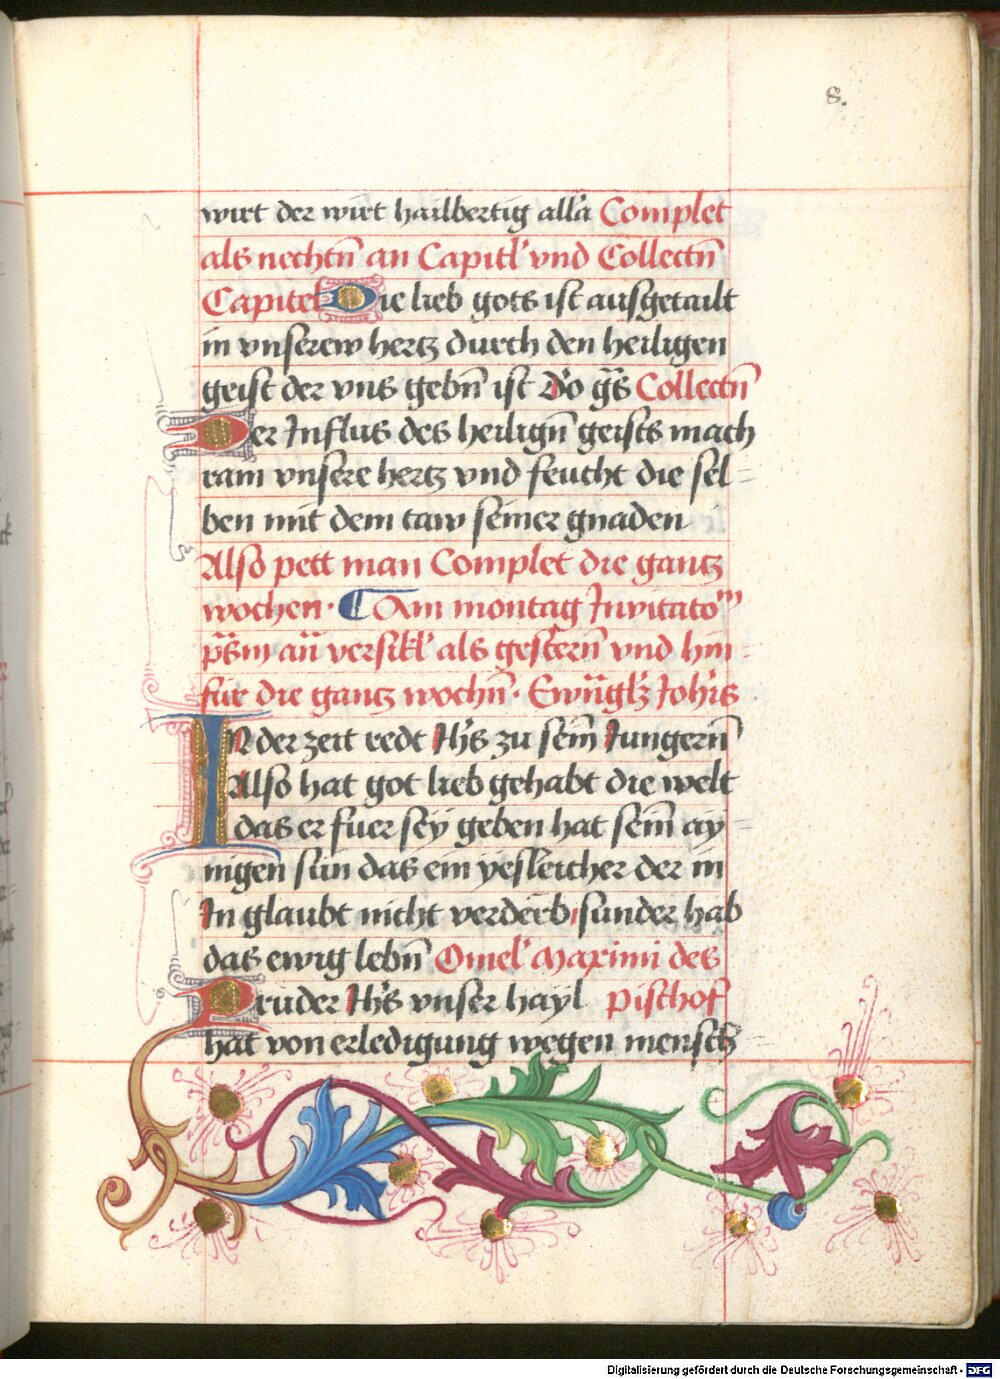 8.
wirt der wirt hailbertig alła Complet
als nechtn̄ an Capitl' vnd Collectn̄
Capitel Die lieb gots ist ausgetailt
in vnserew hertz durch den heiligen
geist der vns gebn̄ ist D'o gs̄ Collectn̄
Der Influs des heilign̄ geists mach
rain vnsere hertz vnd feucht die sel=
ben mit dem taw seiner gnaden
Also pett man Complet die gantz
wochen · Am montag Inuitato
ps̄m an̄ versikl' als gestern̄ vnd hin=
für die gantz wochn̄ · Ewn̄glz Joh's
IN der zeit redt Jh's zu seim̄ Jungern̄
Also hat got lieb gehabt die welt
das er fuer sey geben hat seim̄ ay=
nigen sun das ein yesleicher der in
In glaubt nicht verderb sunder hab
das ewig lebn̄ Omel' Maximi des
Bruder Jh's vnser hayl Pischof
hat von erledigung wegen mensch=
Digitalisierung gefördert durch die Deutsche Forschungsgemeinschaft - DFG